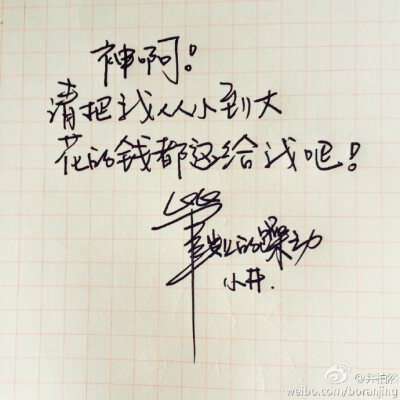 神啊!
请把我从小到大
花的钱都还给我吧!
的躁动
小井.
@井柏然
weibo.com/boranjing